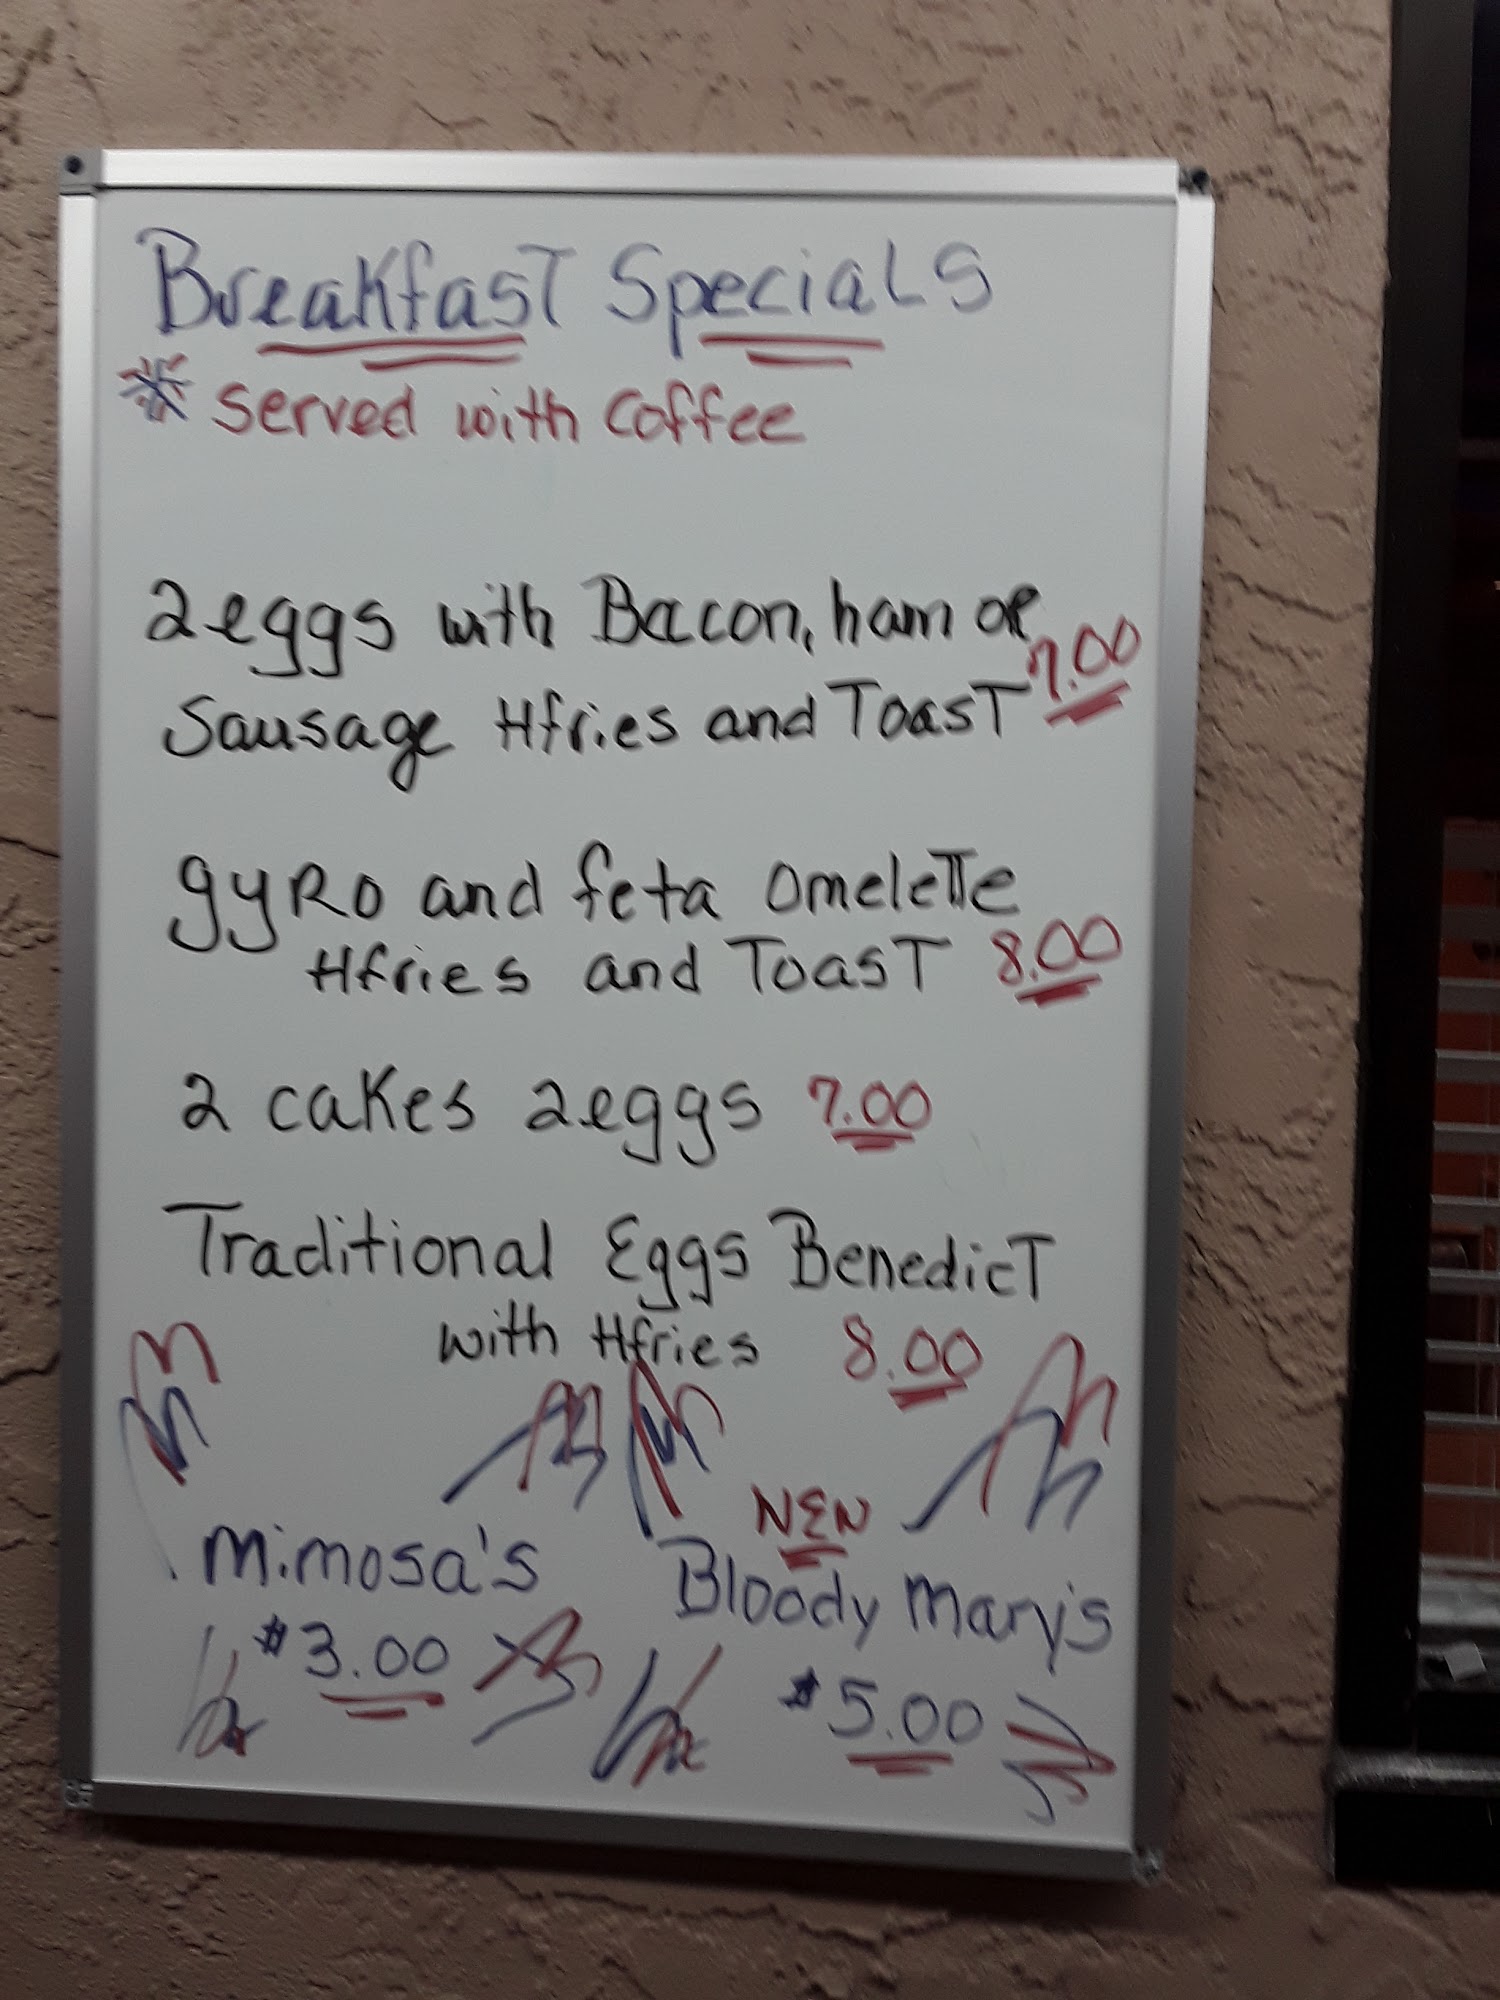 BreakfasT SpeciaLS
* Served with Coffee
2eggs with Bacon, ham oR
Sausage Hfries and ToasT 7.00
gyRo and feta omeleTTe
Hfries and ToasT 8.00
2 cakes 2eggs 7.00
Traditional Eggs BenedicT
with Hfries 8.00
Mimosa's
$3.00
NEW
Bloody Mary's
$5.00